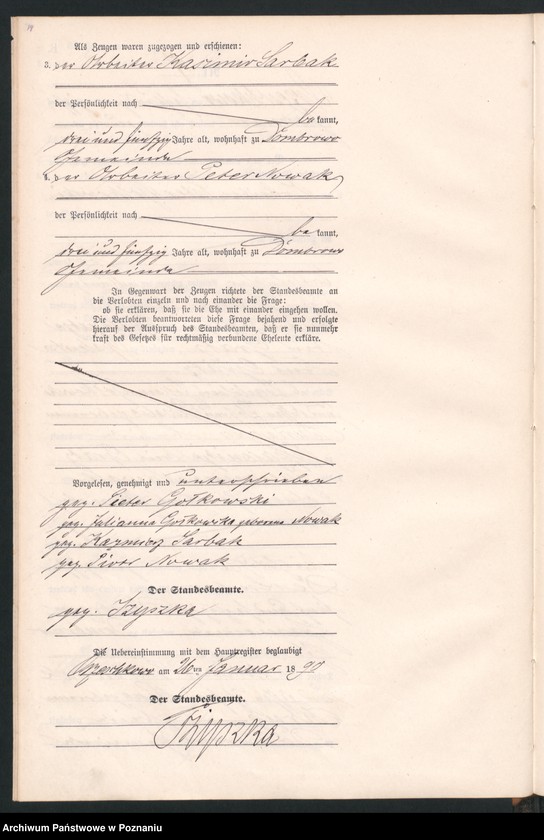 Als Zeugen waren zugezogen und erschienen:
3. der Arbeiter Kasimir Sarbak
der Persönlichkeit nach
be kannt,
drei und fünfzig Jahre alt, wohnhaft zu Dombrowo
Gemeinde
4. der Arbeiter Peter Nowak
der Persönlichkeit nach
be kannt,
drei und fünfzig Jahre alt, wohnhaft zu Dombrowo
Gemeinde
In Gegenwart der Zeugen richtete der Standesbeamte an
die Verlobten einzeln und nach einander die Frage:
ob sie erklären, daß sie die Ehe mit einander eingehen wollen.
Die Verlobten beantworteten diese Frage bejahend und erfolgte
hierauf der Ausspruch des Standesbeamten, daß er sie nunmehr
kraft des Gesetzes für rechtmäßig verbundene Eheleute erkläre.
Vorgelesen, genehmigt und unterschrieben
gez. Pieter Gołkowski
gez. Julianna Gołkowska geborene Nowak
gez. Kazmierz Sarbak
gez. Piotr Nowak
Der Standesbeamte.
gez. Szyszka
Die Uebereinstimmung mit dem Hauptregister beglaubigt
am 26 ten Januar 18 90
Der Standesbeamte.
Szyszka
Archiwum Państwowe w Poznaniu